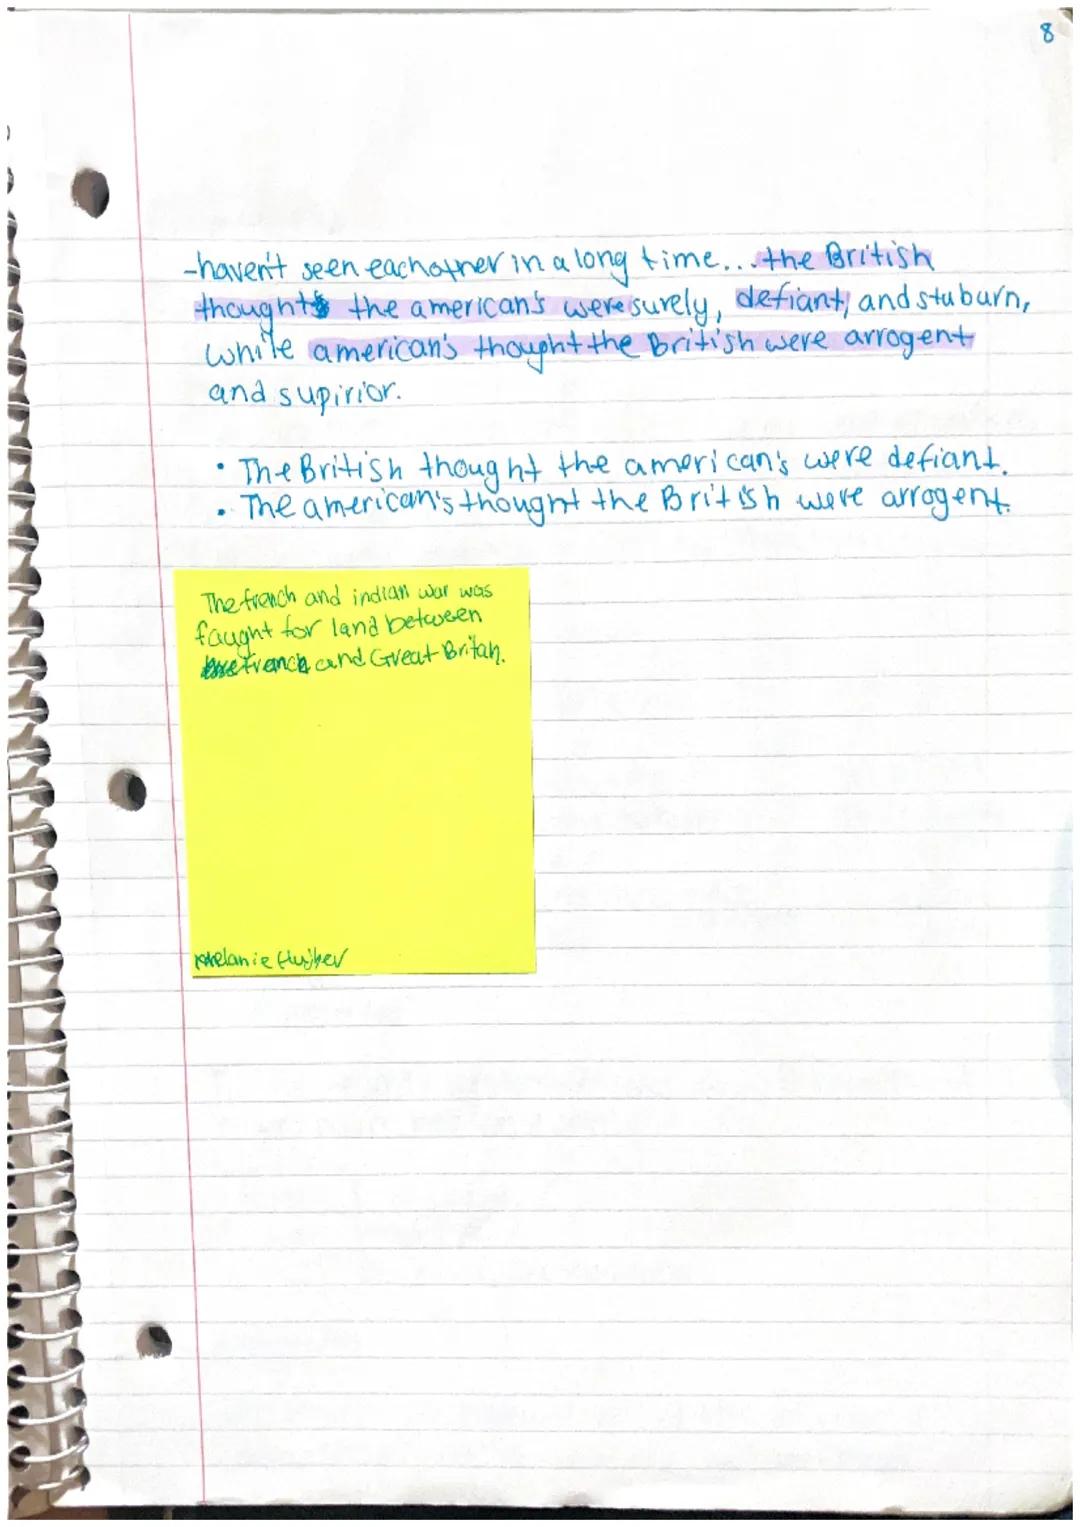 8
-haven't seen eachother in a long time... the British
thought the american's were surely, defiant, and stuburn,
while american's thought the British were arrogent
and supirior.
• The British thought the american's were defiant.
• The american's thought the British were arrogent.
The french and indian war was
faught for land between
france and Great Britan.
Melanie